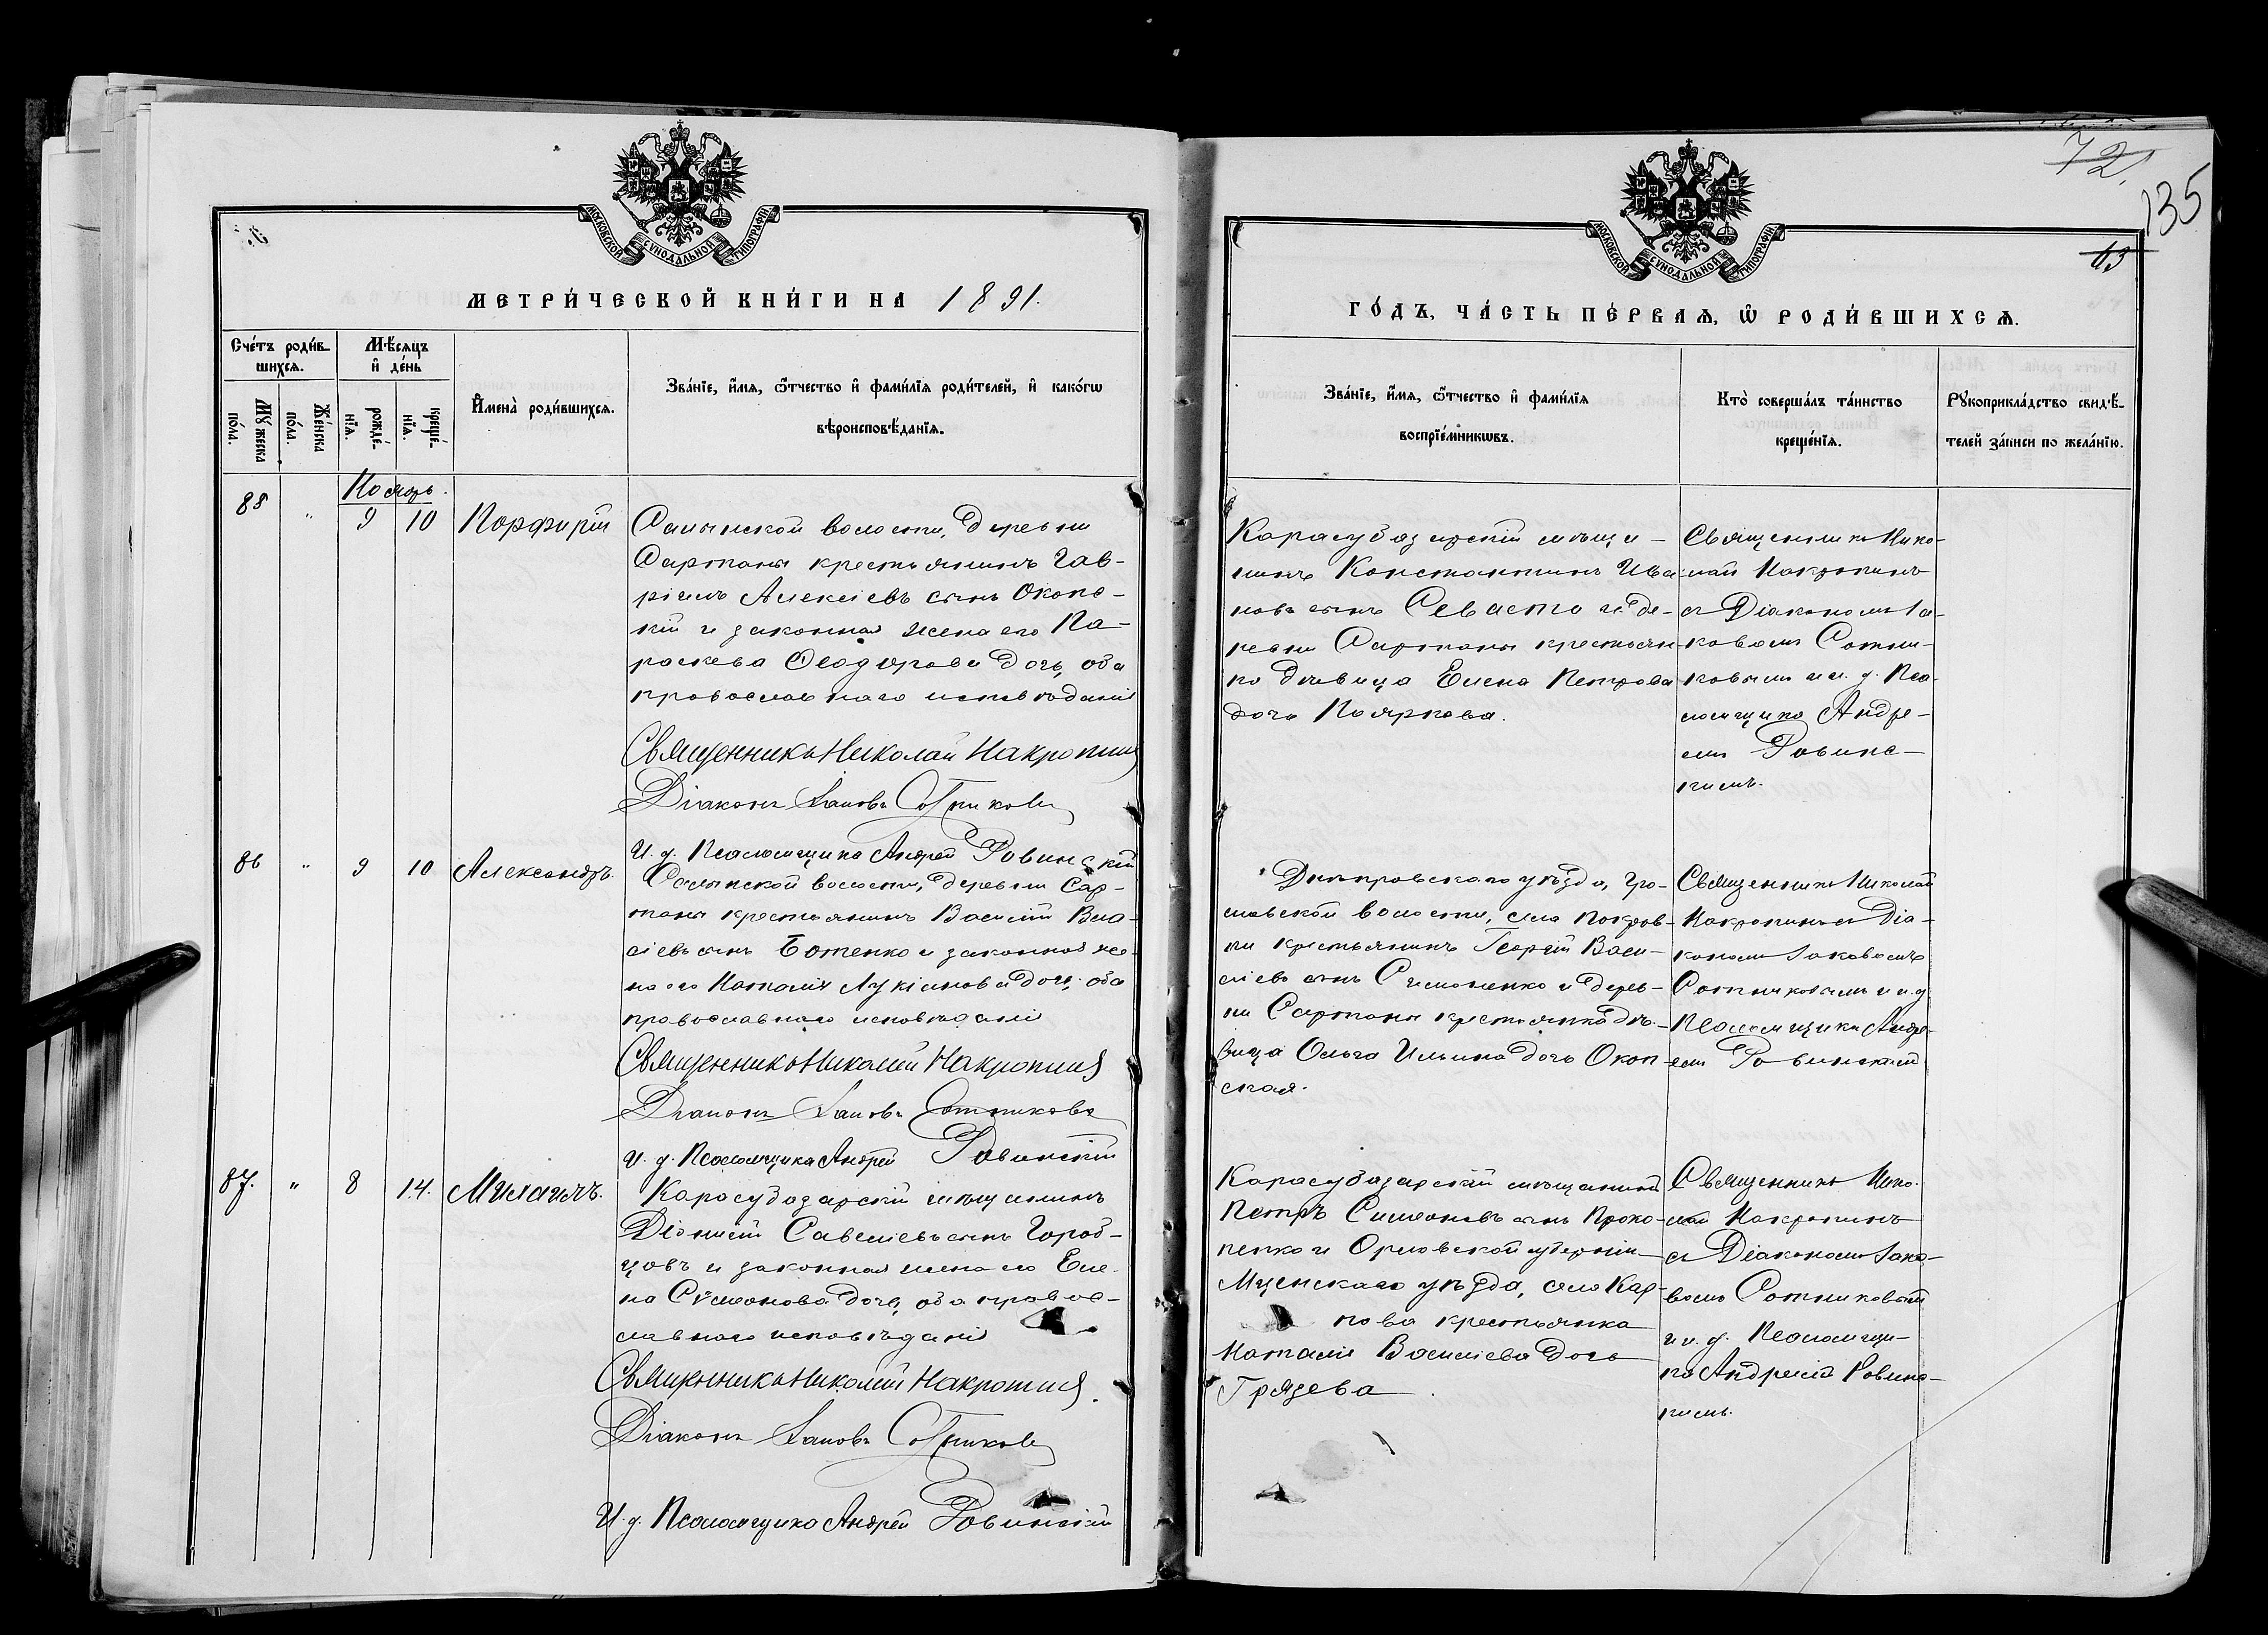 72.
135
63
МОСКОВСКОЙ СѴНОДАЛЬНОЙ ТИПОГРАФІИ
МЕТРИ́ЧЕСКОЙ КНИ́ГИ НА 1891.
Сче́тъ роди́в-
шихся.
Мѣ́сяцъ
и҆ де́нь
Мꙋ́жеска
по́ла.
Же́нска
по́ла.
рожде́-
нїя.
креще́-
нїя.
И҆мена̀ роди́вшихся.
Зва́нїе, и҆́мя, ѻ҆́тчество и҆ фами́лїя роди́телей, и҆ како́гѡ
вѣроисповѣ́данїя.
Ноябрь.
85 " 9 10 Порфирій
Салынской волости, деревни
Сартаны крестьянинъ Гав-
ріилъ Алексіевъ сынъ Окопс-
кій и законная жена его Па-
раскева Ѳеодорова дочь, оба
православнаго исповѣданія
Священникъ Николай Накропинъ
Діаконъ Іаковъ Сотниковъ
И. д. Псаломщика Андрей Ровинскій
86 " 9 10 Александръ.
Салынской волости, деревни Сар-
таны крестьянинъ Василій Вла-
сіевъ сынъ Ботенко и законная же-
на его Наталія Лукіанова дочь, оба
православнаго исповѣданія
Священникъ Николай Накропинъ
Діаконъ Іаковъ Сотниковъ
И. д. Псаломщика Андрей Ровинскій
87. " 8 14. Михаилъ.
Карасубазарскій мѣщанинъ
Діонисій Савеліевъ сынъ Город-
цовъ и законная жена его Еле-
на Сѵмеонова дочь, оба правос-
славнаго исповѣданія
Священникъ Николай Накропинъ
Діаконъ Іаковъ Сотниковъ
И. д. Псаломщика Андрей Ровинскій
МОСКОВСКОЙ СѴНОДАЛЬНОЙ ТИПОГРАФІИ
ГО́ДЪ, ЧА́СТЬ ПЕ́РВАЯ, Ѡ҆ РОДИ́ВШИХСЯ.
Зва́нїе, и҆́мя, ѻ҆́тчество и҆ фами́лїя
воспрїе́мникѡвъ.
Кто̀ соверша́лъ та́инство
креще́нїя.
Рꙋкоприкла́дство свидѣ́-
телей за́писи по жела́нїю.
Карасубазарскій мѣща-
нинъ Константинъ Ива-
новъ сынъ Севасто и де-
ревни Сартаны крестьян-
ка дѣвица Елена Петрова
дочь Пояркова.
Священникъ Нико-
лай Накропинъ
съ Діакономъ Іа-
ковомъ Сотни-
ковымъ и и. д. Пса-
ломщика Андре-
емъ Ровинс-
кимъ.
Днѣпровскаго уѣзда, Гро-
мовской волости, села Покров-
ки крестьянинъ Георгій Васи-
ліевъ сынъ Симоненко и дерев-
ни Сартаны крестьянка дѣ-
вица Ольга Ильина дочь Окоп-
ская.
Священникъ Николай
Накропинъ съ Діа-
кономъ Іаковомъ
Сотниковымъ и и. д.
Псаломщика Андре-
емъ Ровинскимъ
Карасубазарскій мѣщанинъ
Петръ Симеоновъ сынъ Проко-
пенко и Орловской губерніи
Мценскаго уѣзда, села Кар-
пова крестьянка
Наталія Василіева дочь
Грязева.
Священникъ Нико-
лай Накропинъ
съ Діакономъ Іако-
вомъ Сотниковымъ
и и. д. Псаломщи-
ка Андреемъ Ровинс-
кимъ.